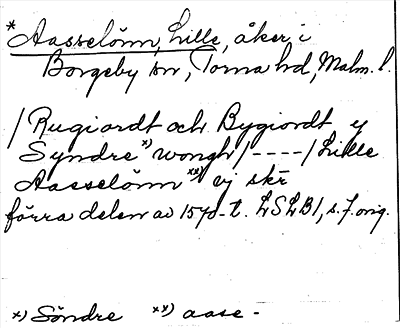 * Aasselönn, Lille, åker i
Borgeby sn, Torna hd, Malm. l.
/ Rugiordt och Bygiordt ÿ
Syndre *) wongh / ---- / Lille
Aasselönn **) vj skr
förra delen av 1570-t. LSLB1, s. 7. orig.
*) Söndre **) aase-